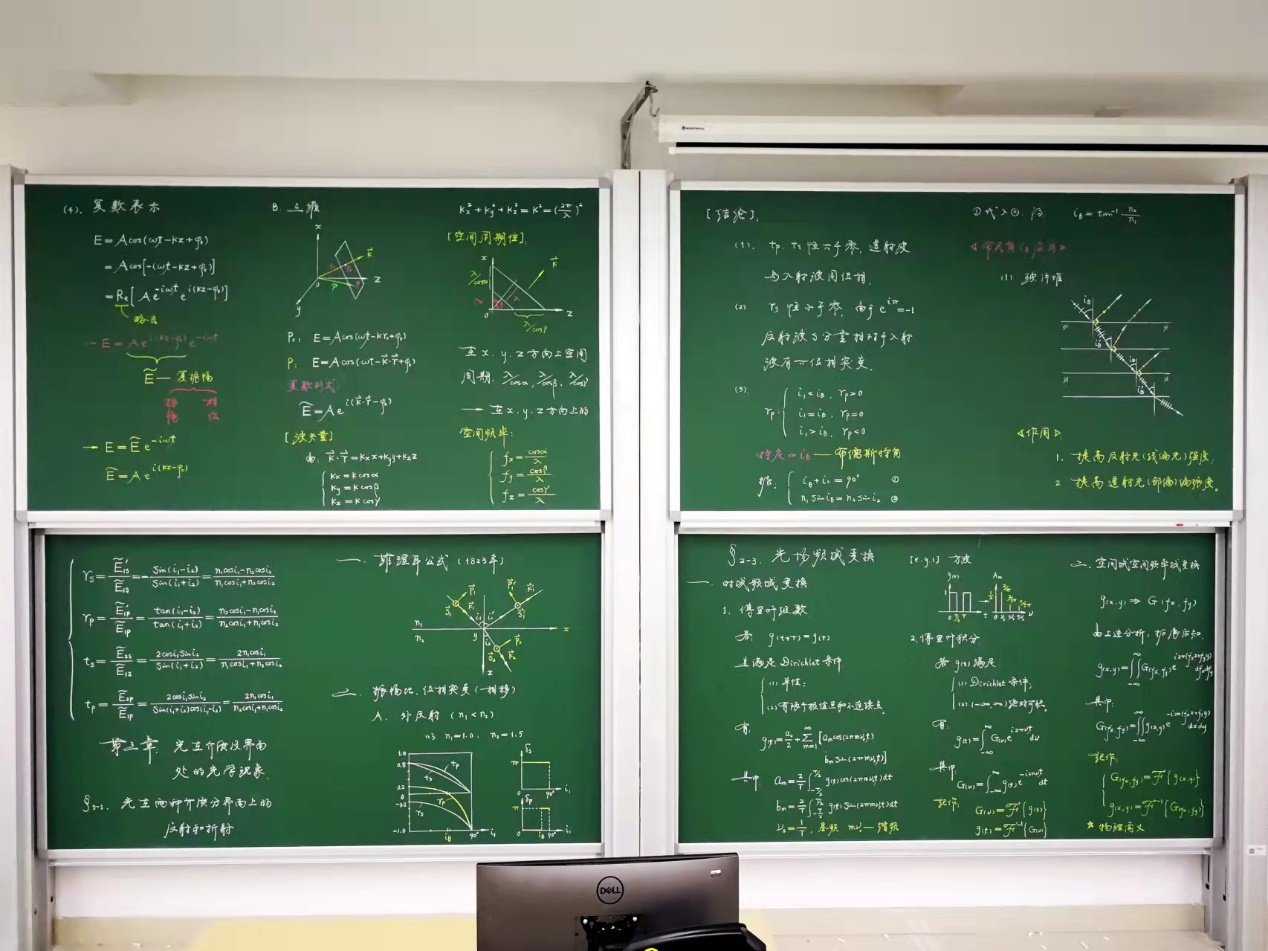 (4). 复数表示
E = A cos(ωt-kz+φ₀)
= A cos[-(ωt-kz+φ₀)]
= Re[A e^{-iωt} e^{i(kz-φ₀)}]
略去
→ E = A e^{i(kz-φ₀)} e^{-iωt}
Ẽ — 复振幅
振幅 相位
→ E = Ẽ e^{-iωt}
Ẽ = A e^{i(kz-φ₀)}
B. 三维
x
k⃗
z
y
P₀: E = A cos(ωt-kr₀+φ₀)
P: E = A cos(ωt-k⃗·r⃗+φ₀)
复数形式
Ẽ = A e^{i(k⃗·r⃗-φ₀)}
[波矢量]
由: k⃗·r⃗ = kₓx+k_y y+k_z z
kₓ = k cosα
k_y = k cosβ
k_z = k cosγ
kₓ²+k_y²+k_z² = k² = (2π/λ)²
[空间周期性].
x
k⃗
λ/cosα
α
λ
0
z
λ/cosγ
在x、y、z方向上空间
周期: λ/cosα, λ/cosβ, λ/cosγ
→ 在x、y、z方向上的
空间频率:
fₓ = cosα/λ
f_y = cosβ/λ
f_z = cosγ/λ
[结论].
(1). tp、ts 恒大于零, 透射波
与入射波同位相.
(2) rs 恒小于零, 由于 e^{iπ}=-1
反射波s分量相对于入射
波有π位相突变.
(3).
rp:
i₁<iB, rp>0
i₁=iB, rp=0
i₁>iB, rp<0
特定的iB — 布儒斯特角
iB+i₂=90° ①
n₁ sin iB = n₂ sin i₂ ②
①代入② 得 iB = tan⁻¹ n₂/n₁
(1) 玻片堆
iB
iB
iB
《作用》
1. 提高反射光(线偏光)强度.
2 提高透射光(部偏)偏振度。
rs = Ẽ'₁s/Ẽ₁s = -sin(i₁-i₂)/sin(i₁+i₂) = (n₁cosi₁-n₂cosi₂)/(n₁cosi₁+n₂cosi₂)
rp = Ẽ'₁p/Ẽ₁p = tan(i₁-i₂)/tan(i₁+i₂) = (n₂cosi₁-n₁cosi₂)/(n₂cosi₁+n₁cosi₂)
ts = Ẽ₂s/Ẽ₁s = 2cosi₁sini₂/sin(i₁+i₂) = 2n₁cosi₁/(n₁cosi₁+n₂cosi₂)
tp = Ẽ₂p/Ẽ₁p = 2cosi₁sini₂/(sin(i₁+i₂)cos(i₁-i₂)) = 2n₁cosi₁/(n₂cosi₁+n₁cosi₂)
第二章 光在介质及界面
处的光学现象.
§2-1. 光在两种介质分界面上的
反射和折射
一. 菲涅耳公式 (1823年)
n₁
n₂
x
y
z
二. 振幅比、位相突变(一相移)
A. 外反射 (n₁<n₂)
n₁=1.0, n₂=1.5
1.0
0.8
0.4
0.2
0
-0.2
-1.0
tp
ts
rp
iB
90°
i₁
δs
π
0
90°
i₁
δp
π
0
iB
90°
i₁
§2-3. 光场频域变换
一. 时域频域变换
1. 傅里叶级数
若 g(t+T)=g(t)
且满足 Dirichlet 条件
(1) 单值;
(2) 有限个极值点和不连续点.
有:
g(t) = a₀/2 + Σ_{m=1}^{∞} [aₘcos(2πmν₀t)
bₘsin(2πmν₀t)]
其中 aₘ = 2/T ∫_{-T/2}^{T/2} g(t)cos(2πmν₀t)dt
bₘ = 2/T ∫_{-T/2}^{T/2} g(t)sin(2πmν₀t)dt
ν₀ = 1/T, 基频 mν₀ — 谐频
[e.g.1] 方波
g(t)
Aₘ
2. 傅里叶积分
若 g(t) 满足
(1) Dirichlet 条件;
(2) (-∞,∞) 绝对可积.
有:
g(t) = ∫_{-∞}^{∞} G(ν)e^{i2πνt}dν
其中
G(ν) = ∫_{-∞}^{∞} g(t)e^{-i2πνt}dt
记作:
G(ν) = ℱ{g(t)}
g(t) = ℱ⁻¹{G(ν)}
二. 空间域空间频率域变换
g(x,y) ⇒ G(fₓ,f_y)
由上述分析, 扩展后知
g(x,y) = ∬_{-∞}^{∞} G(fₓ,f_y)e^{i2π(fₓx+f_y y)}dfₓdf_y
其中
G(fₓ,f_y) = ∬_{-∞}^{∞} g(x,y)e^{-i2π(fₓx+f_y y)}dxdy
记作:
G(fₓ,f_y) = ℱ{g(x,y)}
g(x,y) = ℱ⁻¹{G(fₓ,f_y)}
* 物理意义
DELL